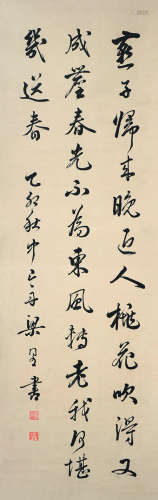 燕子歸來晚近人桃花吹得又
成塵春光不為東風轉老我何堪
幾送春
乙卯秋中
梁
書